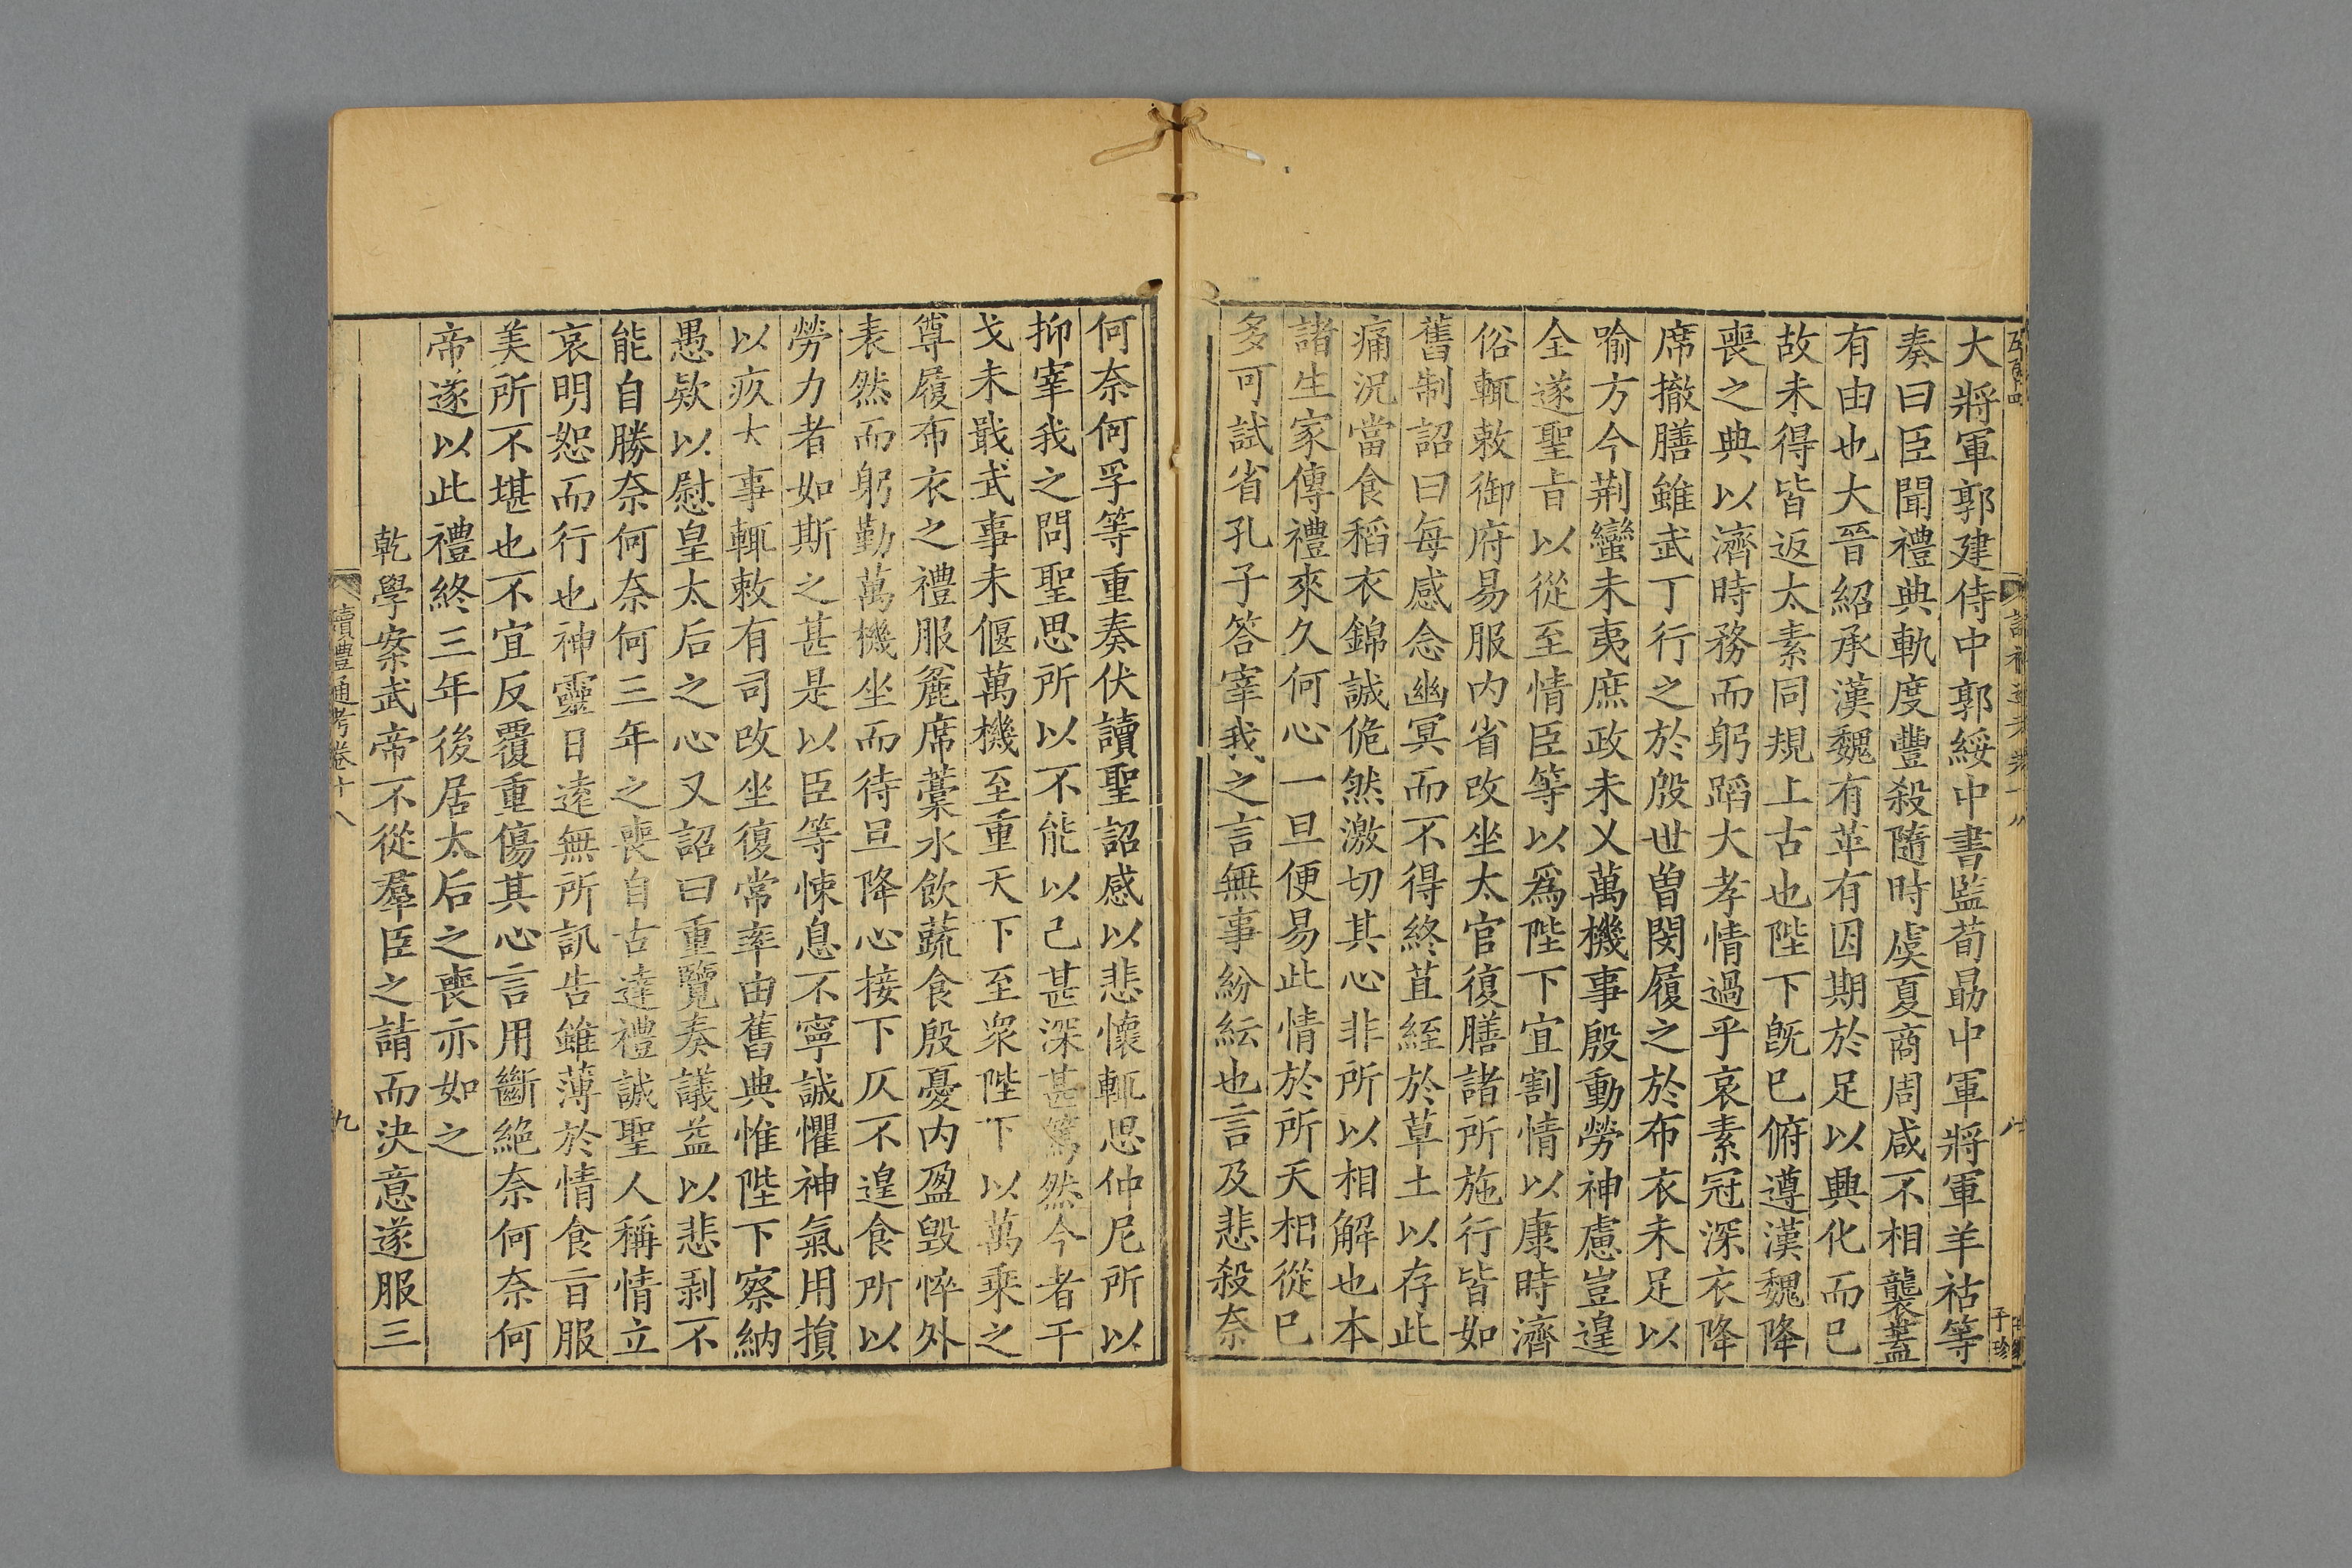 大將軍郭建侍中郭綏中書監荀勗中軍將軍羊祜等
奏曰臣聞禮典軌度豐殺隨時虞夏商周咸不相襲蓋
有由也大晉紹承漢魏有革有因期於足以興化而已
故未得皆返太素同規上古也陛下旣已俯遵漢魏降
喪之典以濟時務而躬蹈大孝情過乎哀素冠深衣降
席撤膳雖武丁行之於殷世曾閔履之於布衣未足以
喻方今荆蠻未夷庶政未乂萬機事殷動勞神慮豈遑
全遂聖旨以從至情臣等以爲陛下宜割情以康時濟
俗輒敕御府易服内省改坐太官復膳諸所施行皆如
舊制詔曰每感念幽冥而不得終苴絰於草土以存此
痛況當食稻衣錦誠佹然激切其心非所以相解也本
諸生家傳禮來久何心一旦便易此情於所天相從已
多可試省孔子答宰我之言無事紛紜也言及悲殺奈
何奈何孚等重奏伏讀聖詔感以悲懷輒思仲尼所以
抑宰我之問聖思所以不能以己甚深甚篤然今者干
戈未戢武事未偃萬機至重天下至衆陛下以萬乘之
尊履布衣之禮服麄席藁水飲蔬食殷憂内盈毀悴外
表然而躬勤萬機坐而待旦降心接下仄不遑食所以
勞力者如斯之甚是以臣等悚息不寧誠懼神氣用損
以疚大事輒敕有司改坐復常率由舊典惟陛下察納
愚欵以慰皇太后之心又詔曰重覽奏議益以悲剥不
能自勝奈何奈何三年之喪自古達禮誠聖人稱情立
哀明恕而行也神靈日遠無所訊告雖薄於情食旨服
美所不堪也不宜反覆重傷其心言用斷絶奈何奈何
帝遂以此禮終三年後居太后之喪亦如之
乾學案武帝不從羣臣之請而決意遂服三
讀禮通考卷十八
九